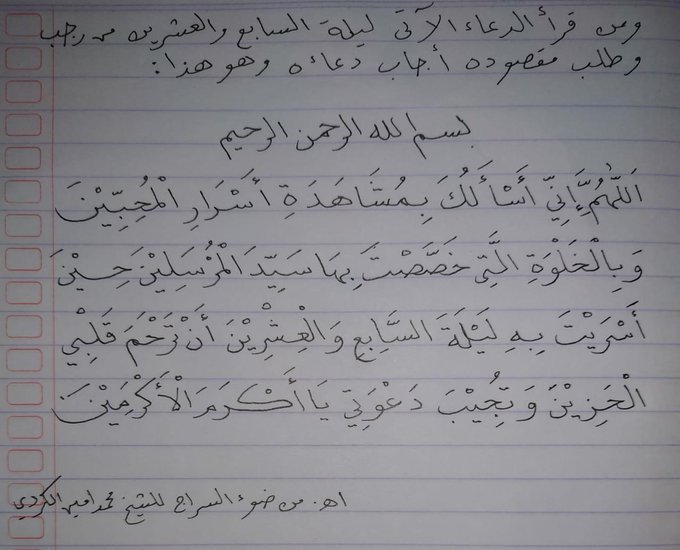 ومن قرأ الدعاء الآتى ليلة السابع والعشرين من رجب
وطلب مقصوده أجاب دعائه وهو هذا:
بسم الله الرحمن الرحيم
اَللّٰهُمَّ إِنِّيْ أَسْأَلُكَ بِمُشَاهَدَةِ أَسْرَارِ الْمُحِبِّيْنَ
وَبِالْخَلْوَةِ الَّتِيْ خَصَّصْتَ بِهَا سَيِّدَ الْمُرْسَلِيْنَ حِيْنَ
أَسْرَيْتَ بِهِ لَيْلَةَ السَّابِعِ وَالْعِشْرِيْنَ أَنْ تَرْحَمَ قَلْبِيْ
الْحَزِيْنَ وَتُجِيْبَ دَعْوَتِيْ يَا أَكْرَمَ الْأَكْرَمِيْنَ
اهـ. من ضوء السراج للشيخ محمد امين الكردي